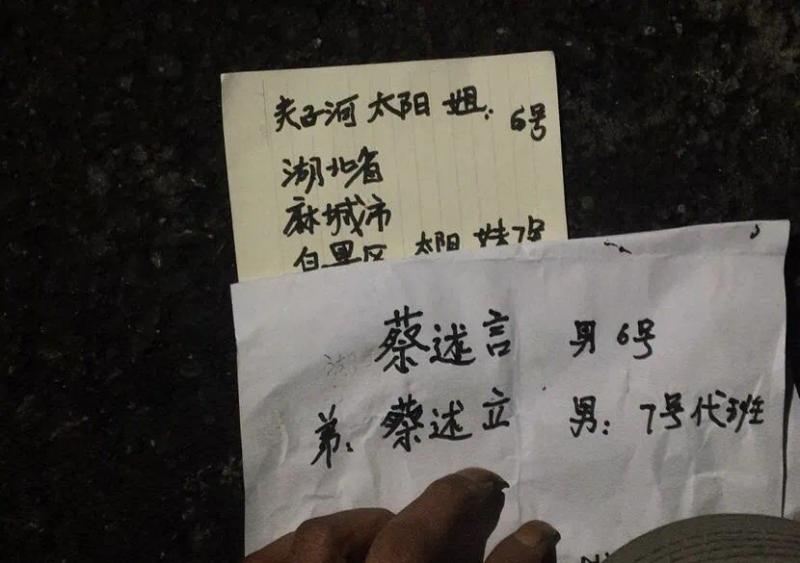 夫子河 太阳 姐: 6号
湖北省
麻城市
白果区 太阳 娃7号
蔡述言 男 6号
弟: 蔡述立 男: 7号代班